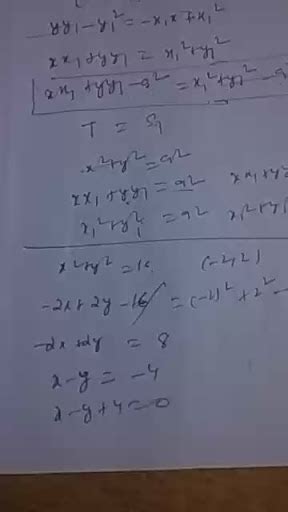 yy₁ - y₁² = -x₁x + x₁²
xx₁ + yy₁ = x₁² + y₁²
xx₁ + yy₁ - a² = x₁² + y₁² - a
T = S₁
x² + y² = a²
xx₁ + yy₁ = a² xx₁ + y
x₁² + y₁² = a² x₁² + y₁
x² + y² = 16 (-2, 2)
-2x + 2y - 16 = (-2)² + 2² -
-2x + 2y = 8
x - y = -4
x - y + 4 = 0